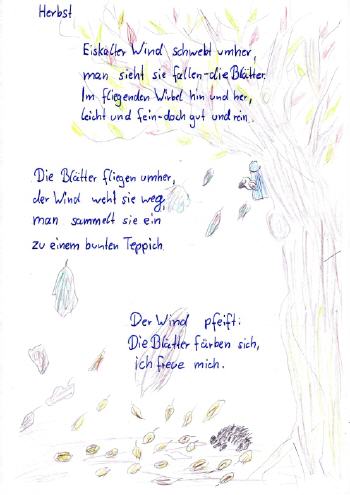 Herbst
Eiskalter Wind schwebt umher,
man sieht sie fallen - die Blätter.
Im fliegenden Wirbel hin und her,
leicht und fein - doch gut und rein.
Die Blätter fliegen umher,
der Wind weht sie weg,
man sammelt sie ein
zu einem bunten Teppich.
Der Wind pfeift:
Die Blätter färben sich,
ich freue mich.